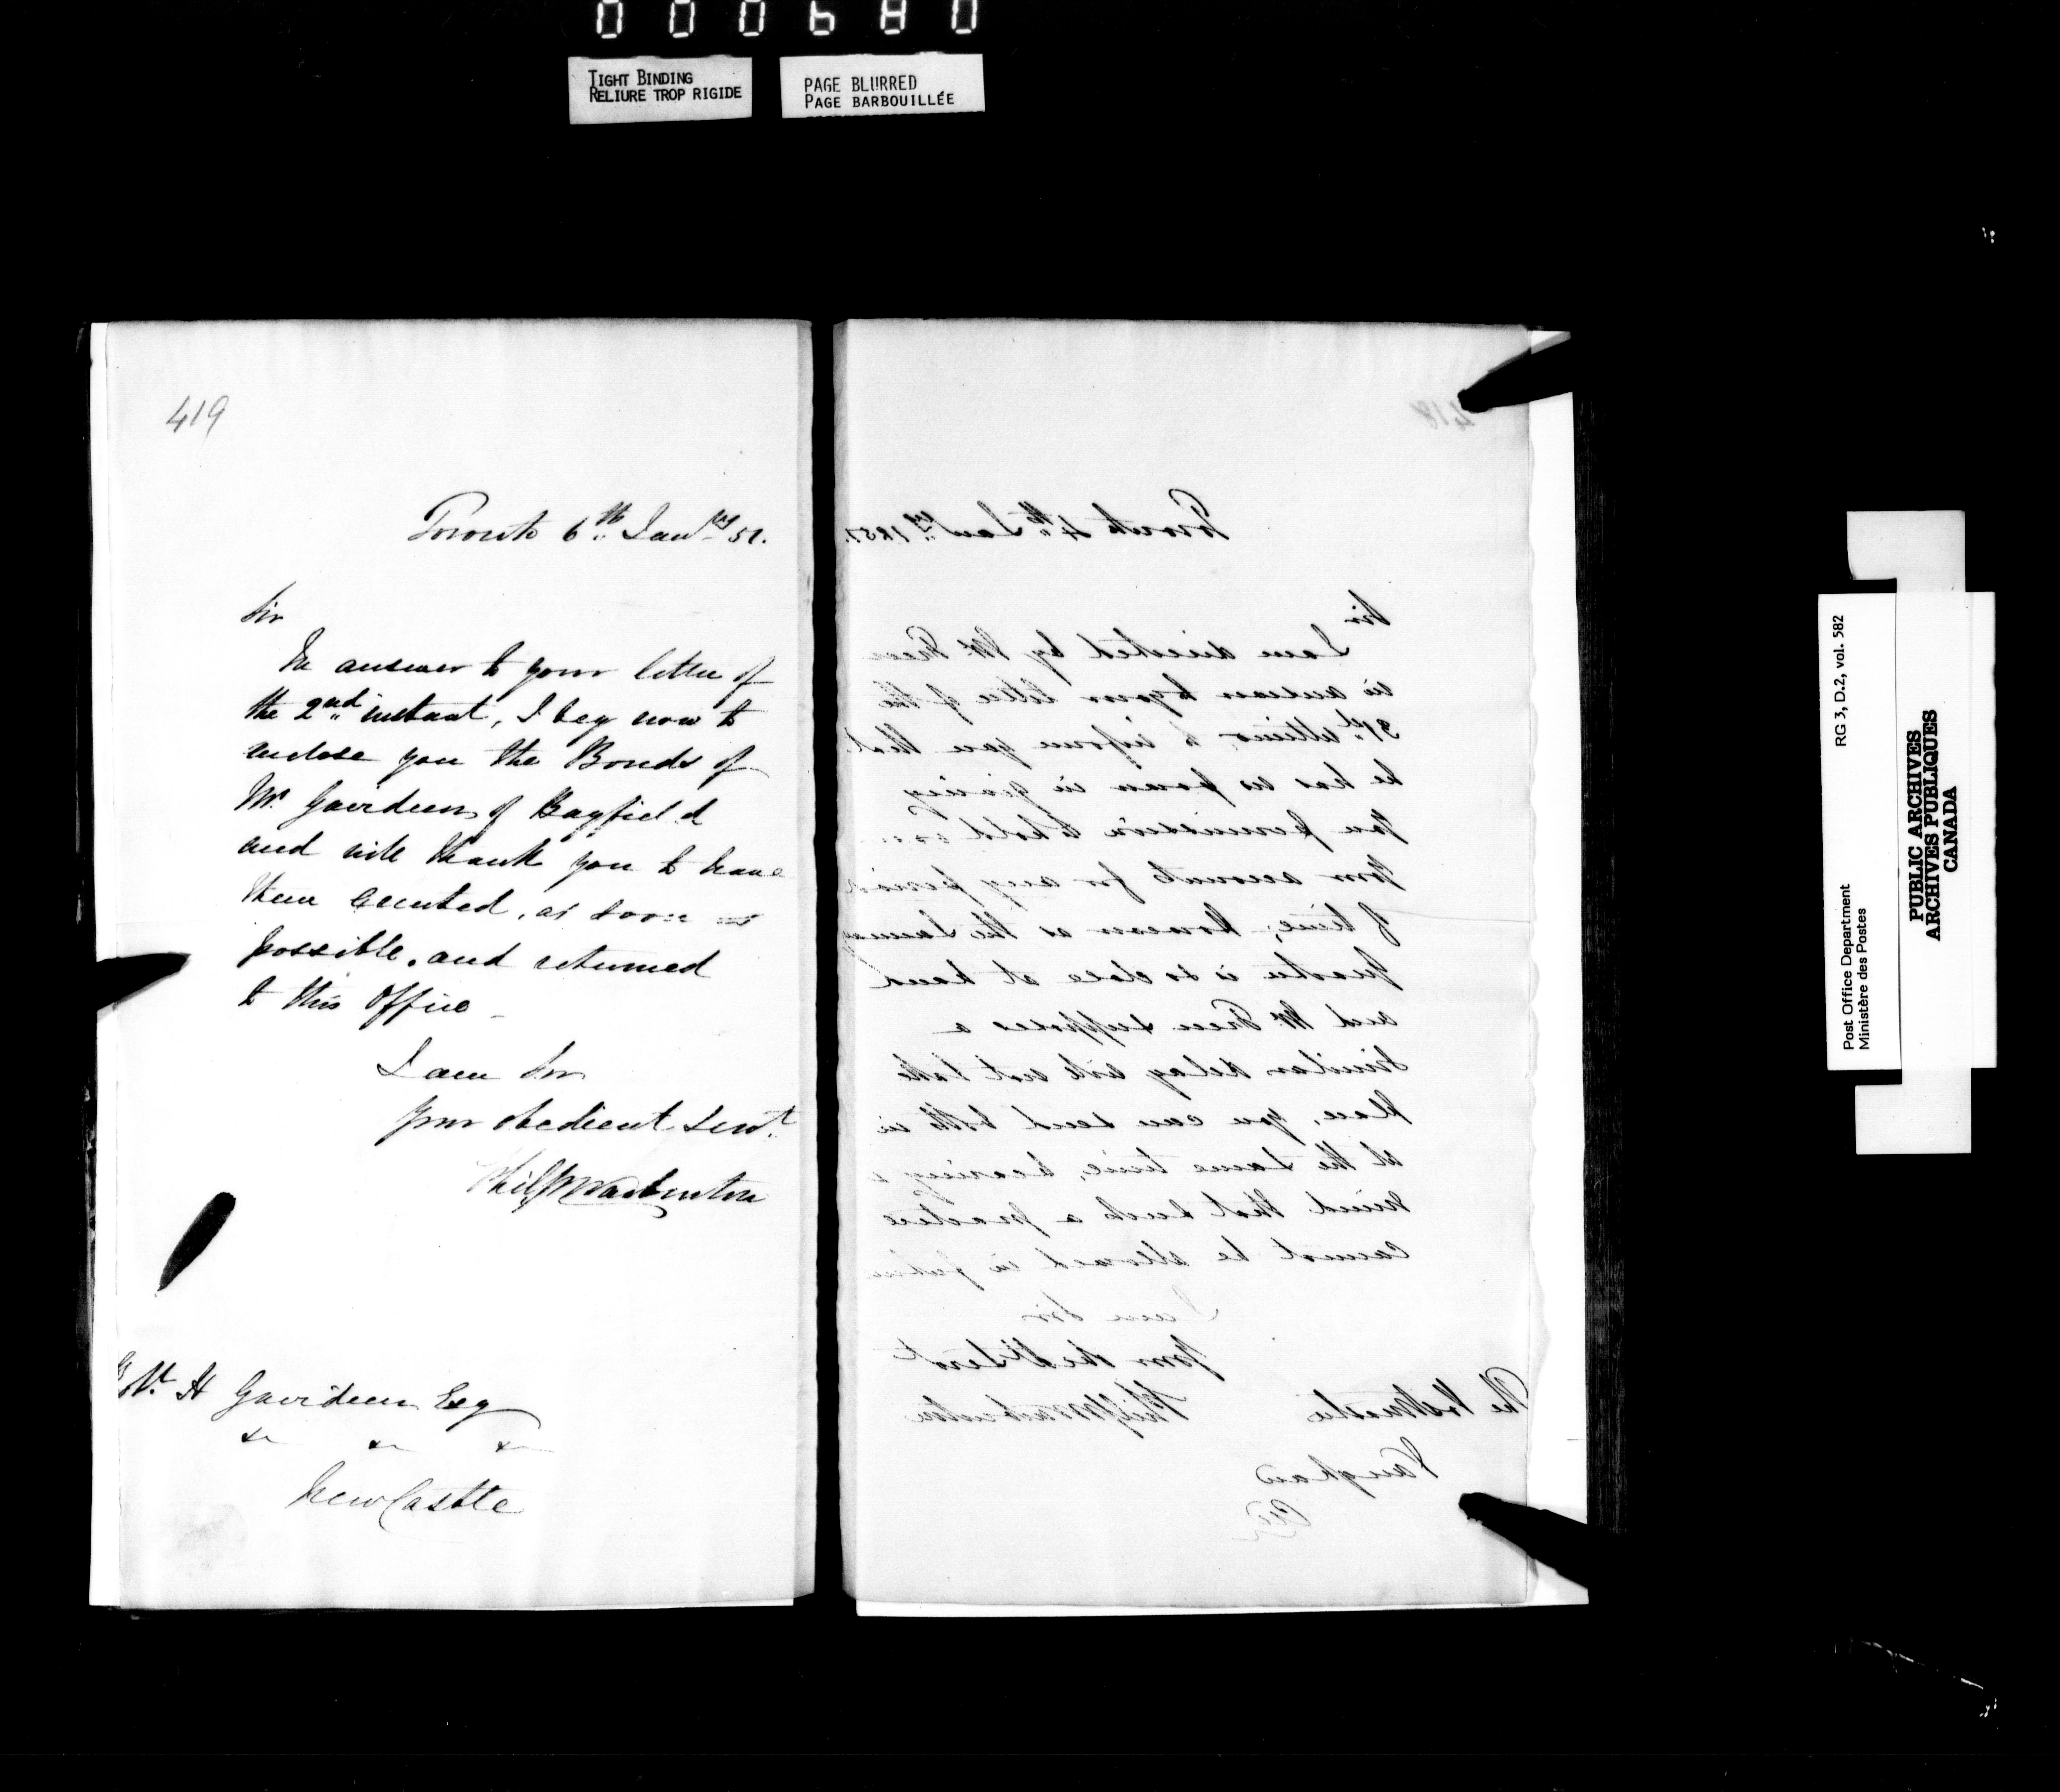 000680
TIGHT BINDING
RELIURE TROP RIGIDE
PAGE BLURRED
PAGE BARBOUILLÉE
419
Toronto 6th Jany 51.
Sir
In answer to your letter of
the 2nd instant, I beg now to
enclose you the Bonds of
Mr. Gairdener of Bayfield
and will thank you to have
them executed, as soon as
possible, and returned
to this Office
I am Sir
your obedient Servt.
H Gairdener Esq
New Castle
418
Toronto 4th Jany 1851.
Sir
I am directed by Mr. Freer
in answer to your letter of the
31st ultimo, to inform you that
he has no power in giving
you permission to hold over
your accounts for any period
of time, however as the January
quarter is so close at hand
and Mr. Freer supposes a
similar delay will not take
place, you can send both in
at the same time, bearing in
mind that such a practice
cannot be allowed in future
I am Sir
your obedt Servt
The Postmaster
Vaughan
CW
RG 3, D.2, vol. 582
Post Office Department
Ministère des Postes
PUBLIC ARCHIVES
ARCHIVES PUBLIQUES
CANADA